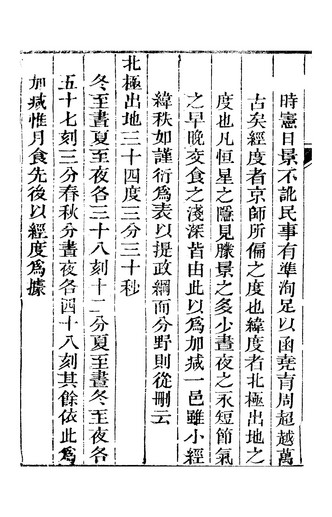 時憲日景不訛民事有準洵足以函堯育周超越萬
古矣經度者京師所偏之度也緯度者北極出地之
度也凡恒星之隱見朦景之多少晝夜之永短節氣
之早晚交食之淺深皆由此以爲加減一邑雖小經
緯秩如謹衍爲表以提政綱而分野則從刪云
北極出地三十四度三分三十秒
冬至晝夏至夜各三十八刻十二分夏至晝冬至夜各
五十七刻三分春秋分晝夜各四十八刻其餘依此爲
加減惟月食先後以經度爲據